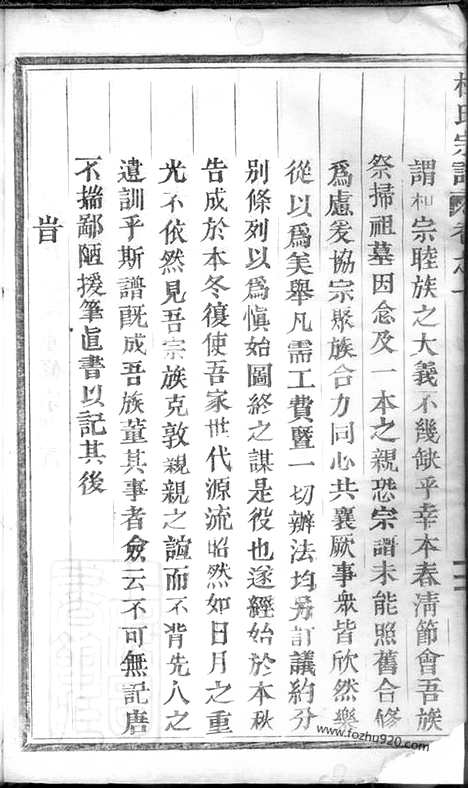 氏宗譜 卷之一
謂和宗睦族之大義不幾缺乎幸本春淸節會吾族
祭掃祖墓因念及一本之親恐宗譜未能照舊合修
爲慮爰協宗聚族合力同心共襄厥事衆皆欣然樂
從以爲美舉凡需工費曁一切辦法均另訂議約分
別條列以爲愼始圖終之謀是役也遂經始於本秋
告成於本冬復使吾家世代源流昭然如日月之重
光不依然見吾宗族克敦親親之誼而不背先人之
遺訓乎斯譜旣成吾族董其事者僉云不可無記庸
不揣鄙陋援筆直書以記其後
旹
www.fozhu920.com